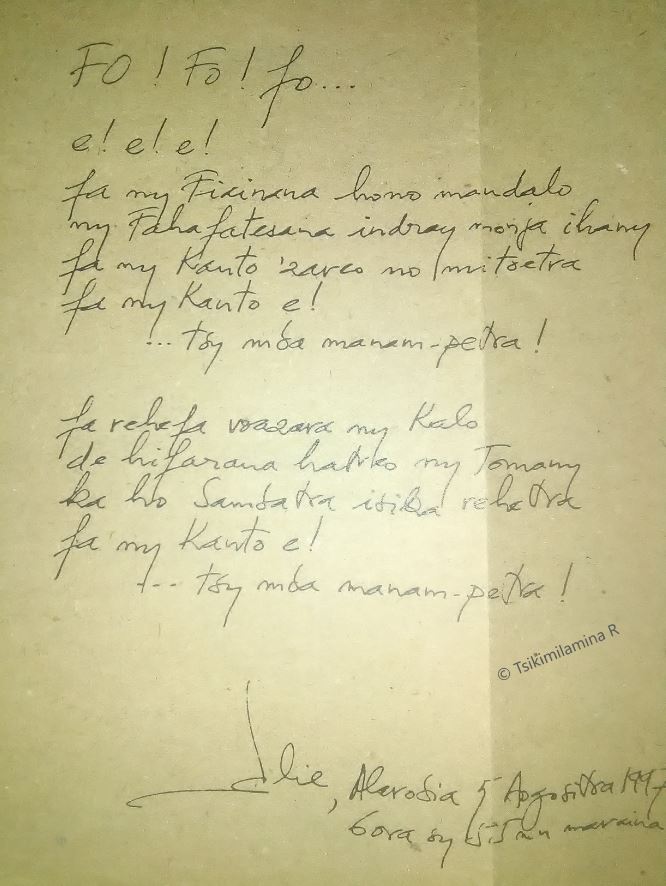 FO! Fo! fo...
e! e! e!
fa ny Fiainana hono mandalo
ny Fahafatesana indray monja ihany
fa ny Kanto 'zareo no mitsetra
fa ny Kanto e!
... tsy mba manam-petra!
fa rehefa voazara ny Kalo
de hifarana hatreo ny Tomany
ka ho Sambatra isika rehetra
fa ny Kanto e!
... tsy mba manam-petra!
© Tsikimilamina R
, Alarobia 5 Aogositra 1997
6ora sy 55 mn maraina